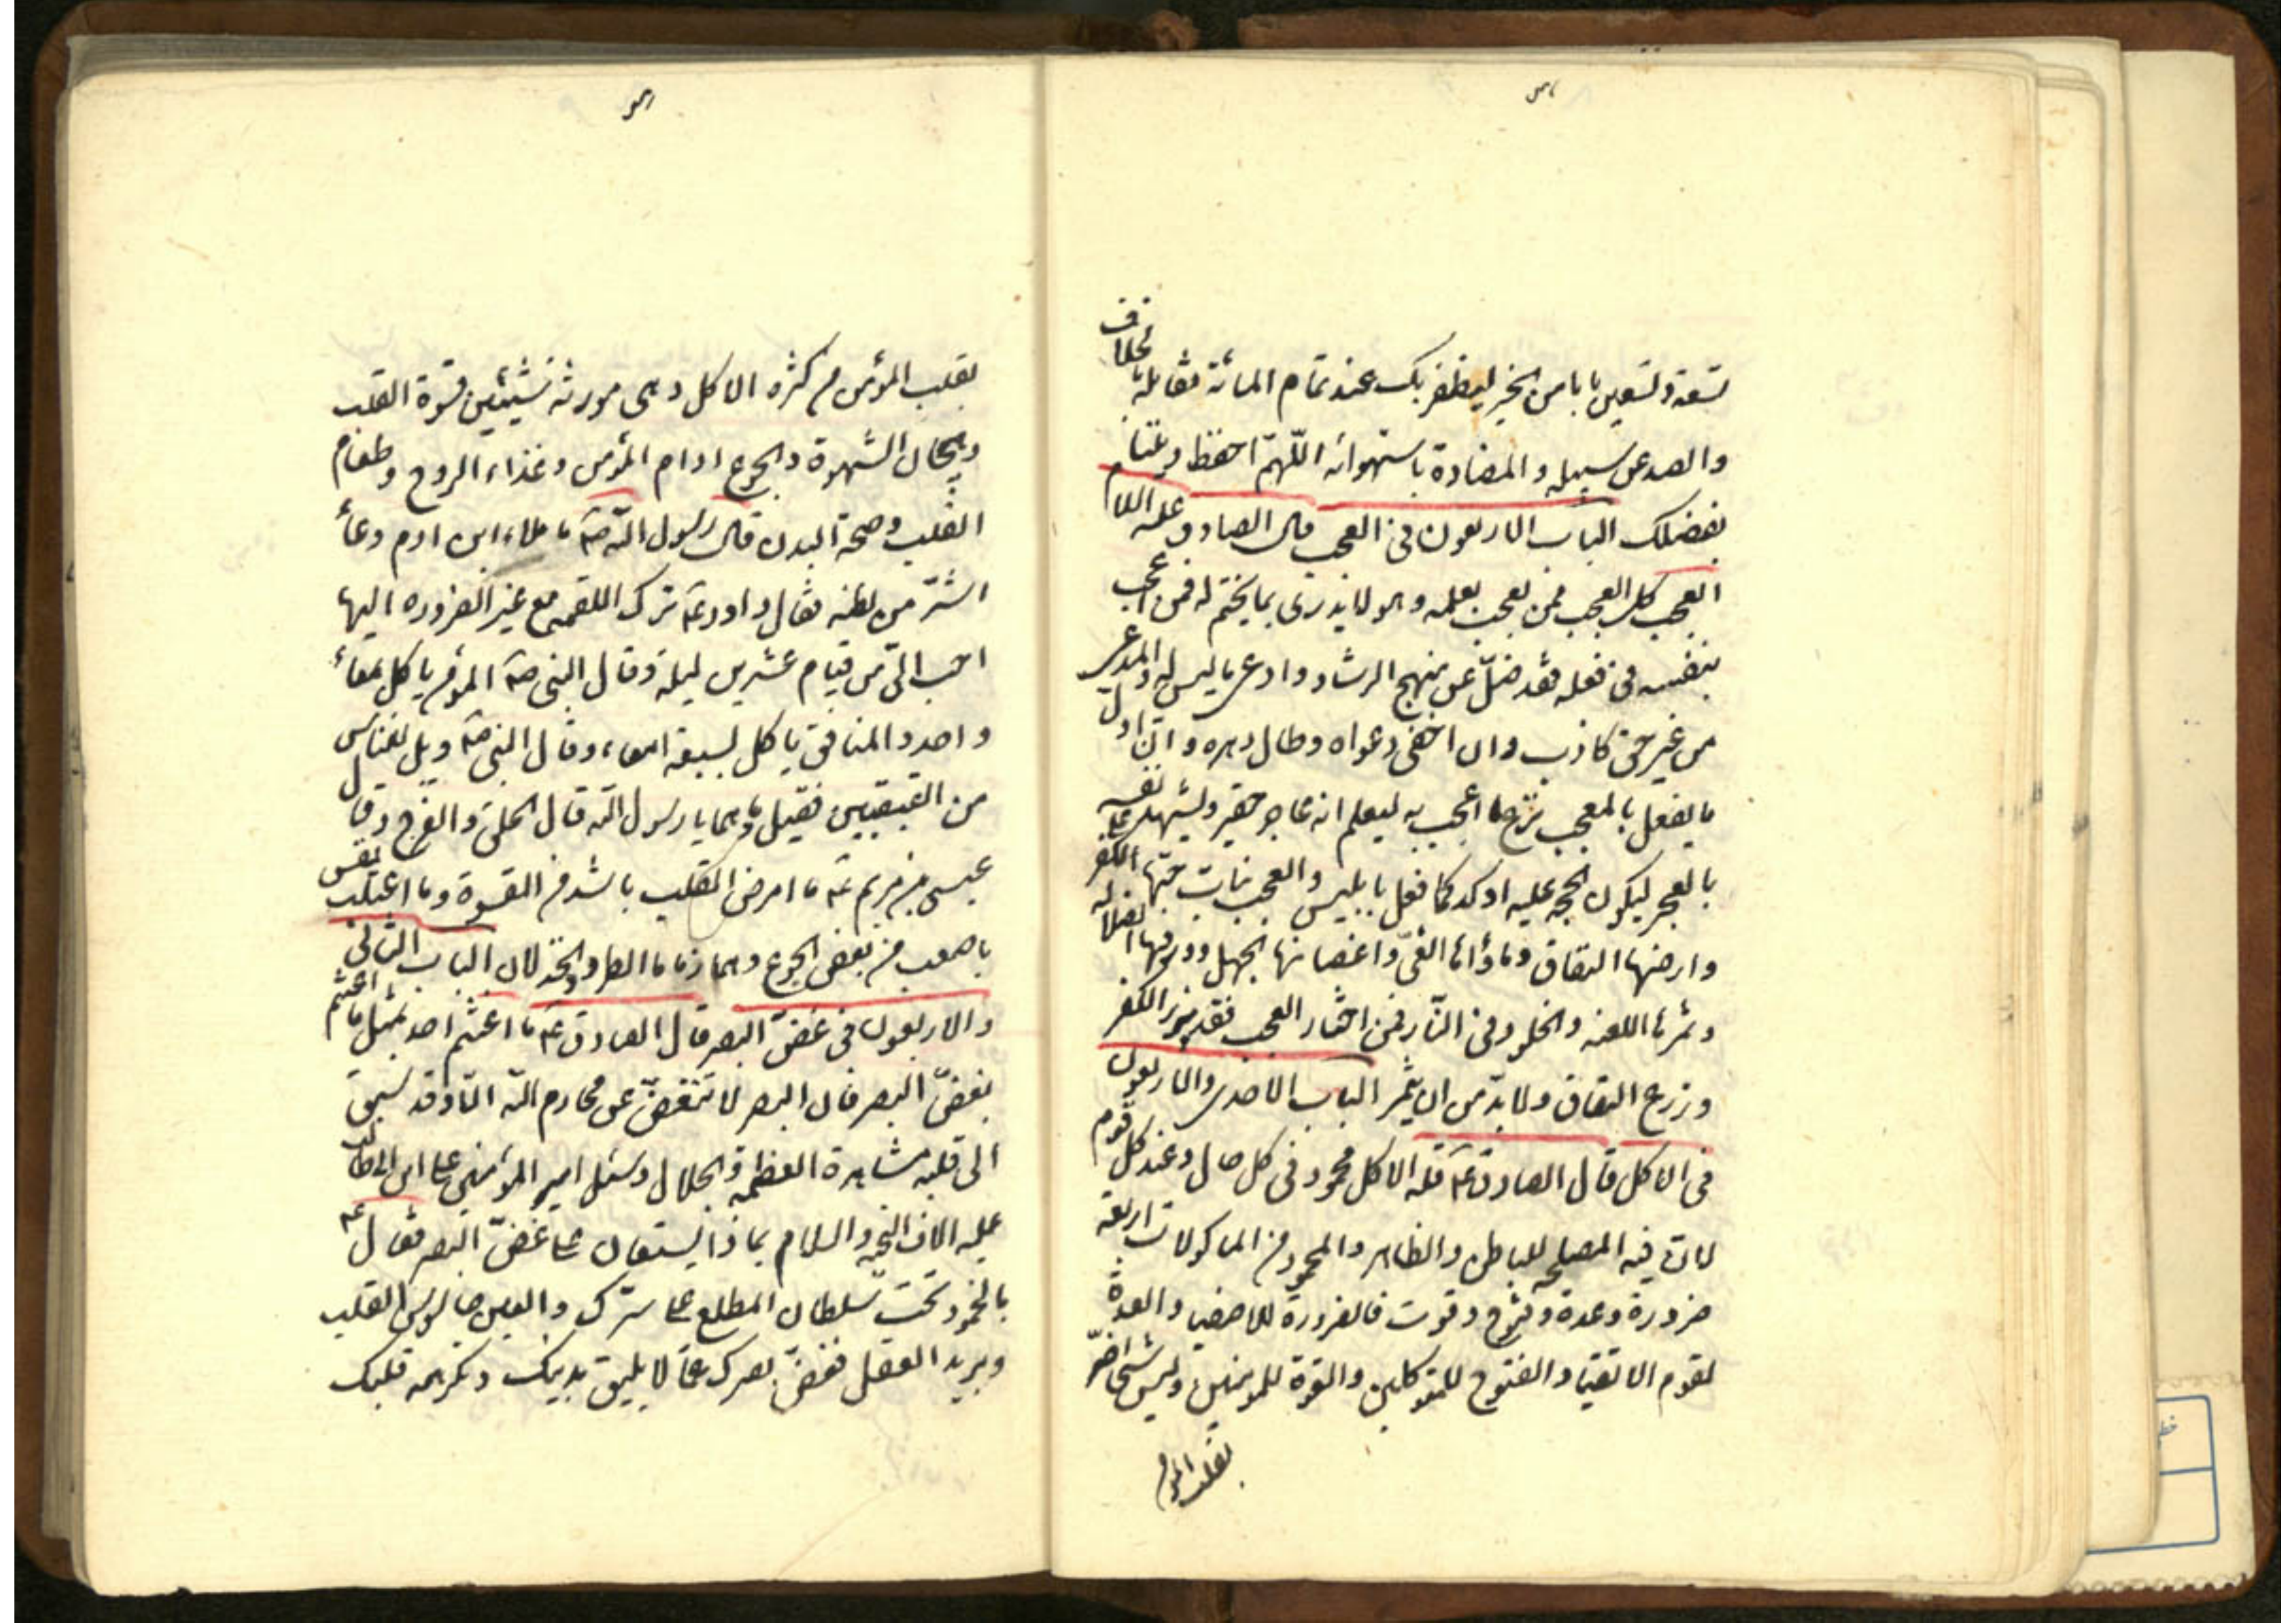 لتسعة وتسعين بابا من الخير ليظفر بك عند تمام المائة فقابله بخلاف
والصد عن سبيله والمضادة باستهوائه اللهم احفظ ديننا
بفضلك الباب الاربعون فى العجب قال الصادق عليه السلام
العجب كل العجب ممن يعجب بعلمه و هو لا يدرى بما يختم له فمن اعجب
بنفسه فى فعله فقد ضل عن منهج الرشاد وادعى ما ليس له والمدعى
من غير حق كاذب وان اخفى دعواه وطال دهره وان اول
ما يفعل بالمعجب نزع ما اعجب به ليعلم انه عاجز حقير وليشهد على نفسه
بالعجز ليكون الحجة عليه اوكد كما فعل بابليس والعجب نبات حبها الكفر
وارضها النفاق وماؤها الغى واغصانها الجهل وورقها الضلالة
وثمرها اللعنه والخلود فى النار فمن اختار العجب فقد بذر الكفر
وزرع النفاق ولا بد من ان يثمر الباب الاحدى والاربعون
فى الاكل قال الصادق عم قلة الاكل محمود فى كل حال وعند كل قوم
لان فيه المصلحه للباطن والظاهر والمحمود من الماكولات اربعة
ضرورة وعدة وفتوح وقوت فالضرورة للاصفيا والعدة
لقوم الاتقيا والفتوح للمتوكلين والقوة للمومنين وليس شئ اضر
بقلب المومن
بقلب المؤمن من كثره الاكل وهى مورثة شيئين قسوة القلب
وهيجان الشهوة والجوع ادام المؤمن وغذاء الروح وطعام
القلب وصحة البدن قال رسول الله صه ما ملاء ابن ادم وعاء
اشر من بطنه فقال داود عم ترك اللقمه مع غير الضروره اليها
احب الى من قيام عشرين ليلة وقال النبى صه المؤمن ياكل بمعاء
واحد والمنافق ياكل بسبعة امعاء وقال النبى صه ويل للناس
من القبقبين فقيل وما هما يا رسول الله قال الحلق والفرج وقال
عيسى بن مريم عه ما امرض القلب باشد من القسوة وما اعتلت نفس
باصعب من بعض الجوع وهما زماما الطرد والخذلان الباب الثانى
والاربعون فى غض البصر قال الصادق عم ما اغتنم احد بمثل ما اغتنم
بغض البصر فان البصر لا تنغض عن محارم الله الا وقد سبق
الى قلبه مشاهدة العظمه والجلال وسئل امير المؤمنين على ابن ابى طالب
عليه الاف التحيه والسلام بماذا يستعان على غض البصر فقال عه
بالخمود تحت سلطان المطلع على سرك والعين جاسوس القلب
وبريد العقل فغض بصرك عما لا يليق بدينك ويكرهه قلبك